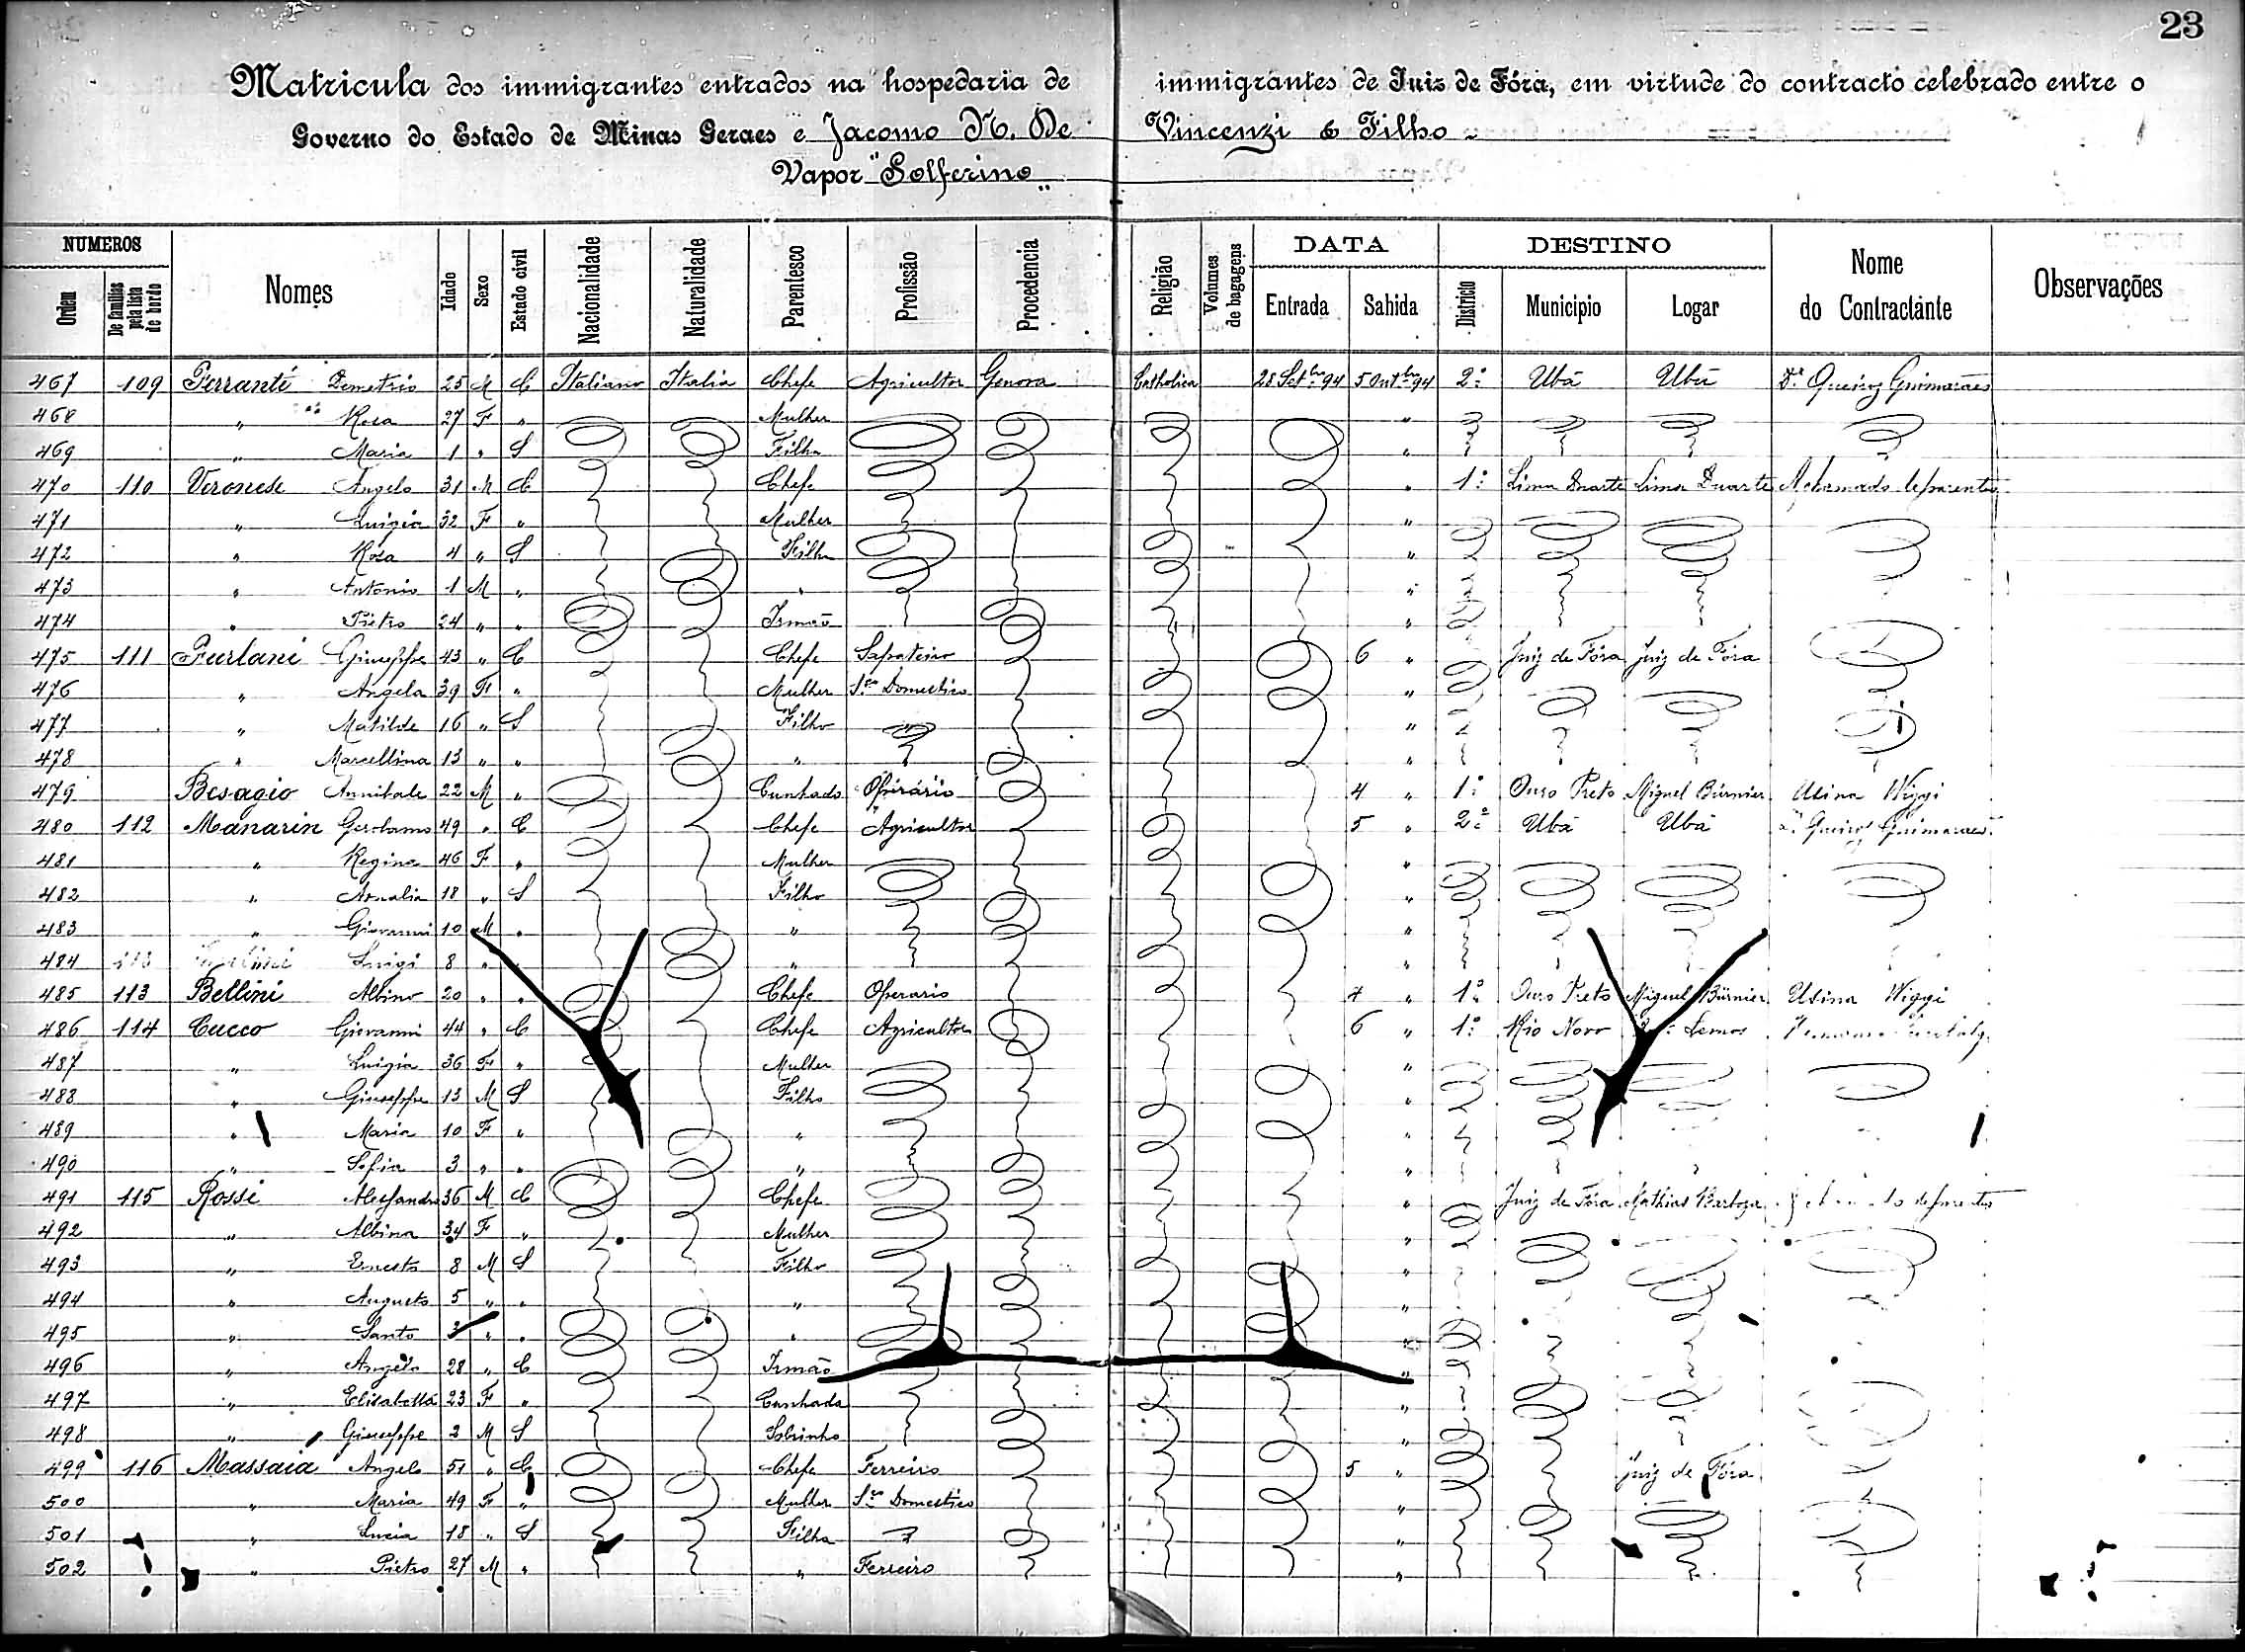 23
Matricula dos immigrantes entrados na hospedaria de immigrantes de Juiz de Fóra, em virtude do contracto celebrado entre o
Governo do Estado de Minas Geraes e Jacomo N. De Vincenzi & Filho
Vapor "Solferino"
NUMEROS Nomes Idade Sexo Estado civil Nacionalidade Naturalidade Parentesco Profissão Procedencia Religião Volumes de bagagens DATA DESTINO Nome do Contractante Observações
Ordem De familias pela lista de bordo Entrada Sahida Districto Municipio Logar
467 109 Ferrante Demetrio 25 M C Italiano Italia Chefe Agricultor Genova Catholica 28 Setbr 94 5 Outbr 94 2º Ubá Ubá Dr Queiroz Guimarães
468 " Rosa 27 F " Mulher "
469 " Maria 1 " S Filha "
470 110 Veronese Angelo 31 M C Chefe " 1º Lima Duarte Lima Duarte A chamado de parentes
471 " Luigia 32 F " Mulher "
472 " Rosa 4 " S Filha "
473 " Antonio 1 M " " "
474 " Pietro 24 " " Irmão "
475 111 Furlani Giuseppe 43 " C Chefe Sapateiro 6 " Juiz de Fóra Juiz de Fóra
476 " Angela 39 F " Mulher Sço Domestico "
477 " Matilde 16 " S Filho " "
478 " Marcellina 13 " " " "
479 Besagio Annibale 22 M " Cunhado Operário 4 " 1º Ouro Preto Miguel Búrnier Usina Wiggi
480 112 Manarin Gerolamo 49 " C Chefe Agricultor 5 " 2º Ubá Ubá Dr Queiroz Guimarães
481 " Regina 46 F " Mulher "
482 " Amalia 18 " S Filho "
483 " Giovanni 10 M " " "
484 Luigi 8 " " "
485 113 Bellini Albino 20 " " Chefe Operario 4 " 1º Ouro Preto Miguel Búrnier Usina Wiggi
486 114 Cucco Giovanni 44 " C Chefe Agricultor 6 " 1º Rio Novo Lemos
487 " Luigia 36 F " Mulher "
488 " Giuseppe 13 M S Filho "
489 " Maria 10 F " " "
490 " Sofia 3 " " " "
491 115 Rossi Alessandro 36 M C Chefe " Juiz de Fóra Mathias Barboza de parentes
492 " Albina 34 F " Mulher "
493 " Ernesto 8 M S Filho "
494 " Augusto 5 " " " "
495 " Santo 3 " " "
496 " Angelo 28 " C Irmão "
497 " Elisabetta 23 F " Cunhada "
498 " Giuseppe 2 M S Sobrinho "
499 116 Massaia Angelo 51 " C Chefe Ferreiro 5 " Juiz de Fóra
500 " Maria 49 F " Mulher Sço Domestico "
501 " Lucia 18 " S Filha "
502 " Pietro 27 M " " Ferreiro "